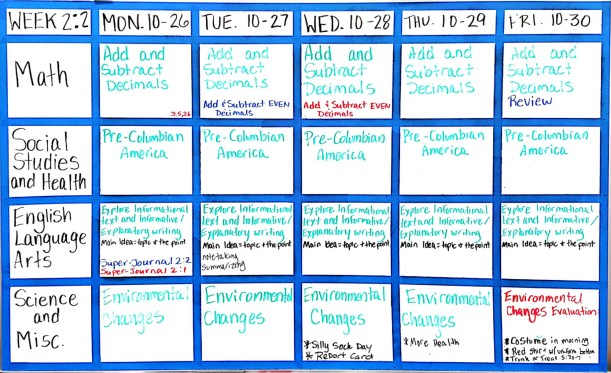 WEEK 2:2
MON. 10-26
TUE. 10-27
WED. 10-28
THU. 10-29
FRI. 10-30
Math
Add and
Subtract
Decimals
3.5,26
Add and
Subtract
Decimals
Add & Subtract EVEN
Decimals
Add and
Subtract
Decimals
Add & Subtract EVEN
Decimals
Add and
Subtract
Decimals
Add and
Subtract
Decimals
Review
Social
Studies
and Health
Pre-Columbian
America
Pre-Columbian
America
Pre-Columbian
America
Pre-Columbian
America
Pre-Columbian
America
English
Language
Arts
Explore Informational
Text and Informative/
Explanatory writing
Main Idea=topic + the point
Super-Journal 2:2
Super-Journal 2:1
Explore Informational
Text and Informative/
Explanatory writing
Main Idea=topic + the point
note taking
summarizing
Explore Informational
Text and Informative/
Explanatory writing
Main Idea=topic + the point
Explore Informational
Text and Informative/
Explanatory writing
Main Idea=topic + the point
Explore Informational
Text and Informative/
Explanatory writing
Main Idea=topic + the point
Science
and
Misc.
Environmental
Changes
Environmental
Changes
Environmental
Changes
* Silly Sock Day
* Report Card
Environmental
Changes
* More Health
Environmental
Changes Evaluation
* Costume in morning
* Red Shirt w/uniform bottom
* Trunk or Treat 5:30-7